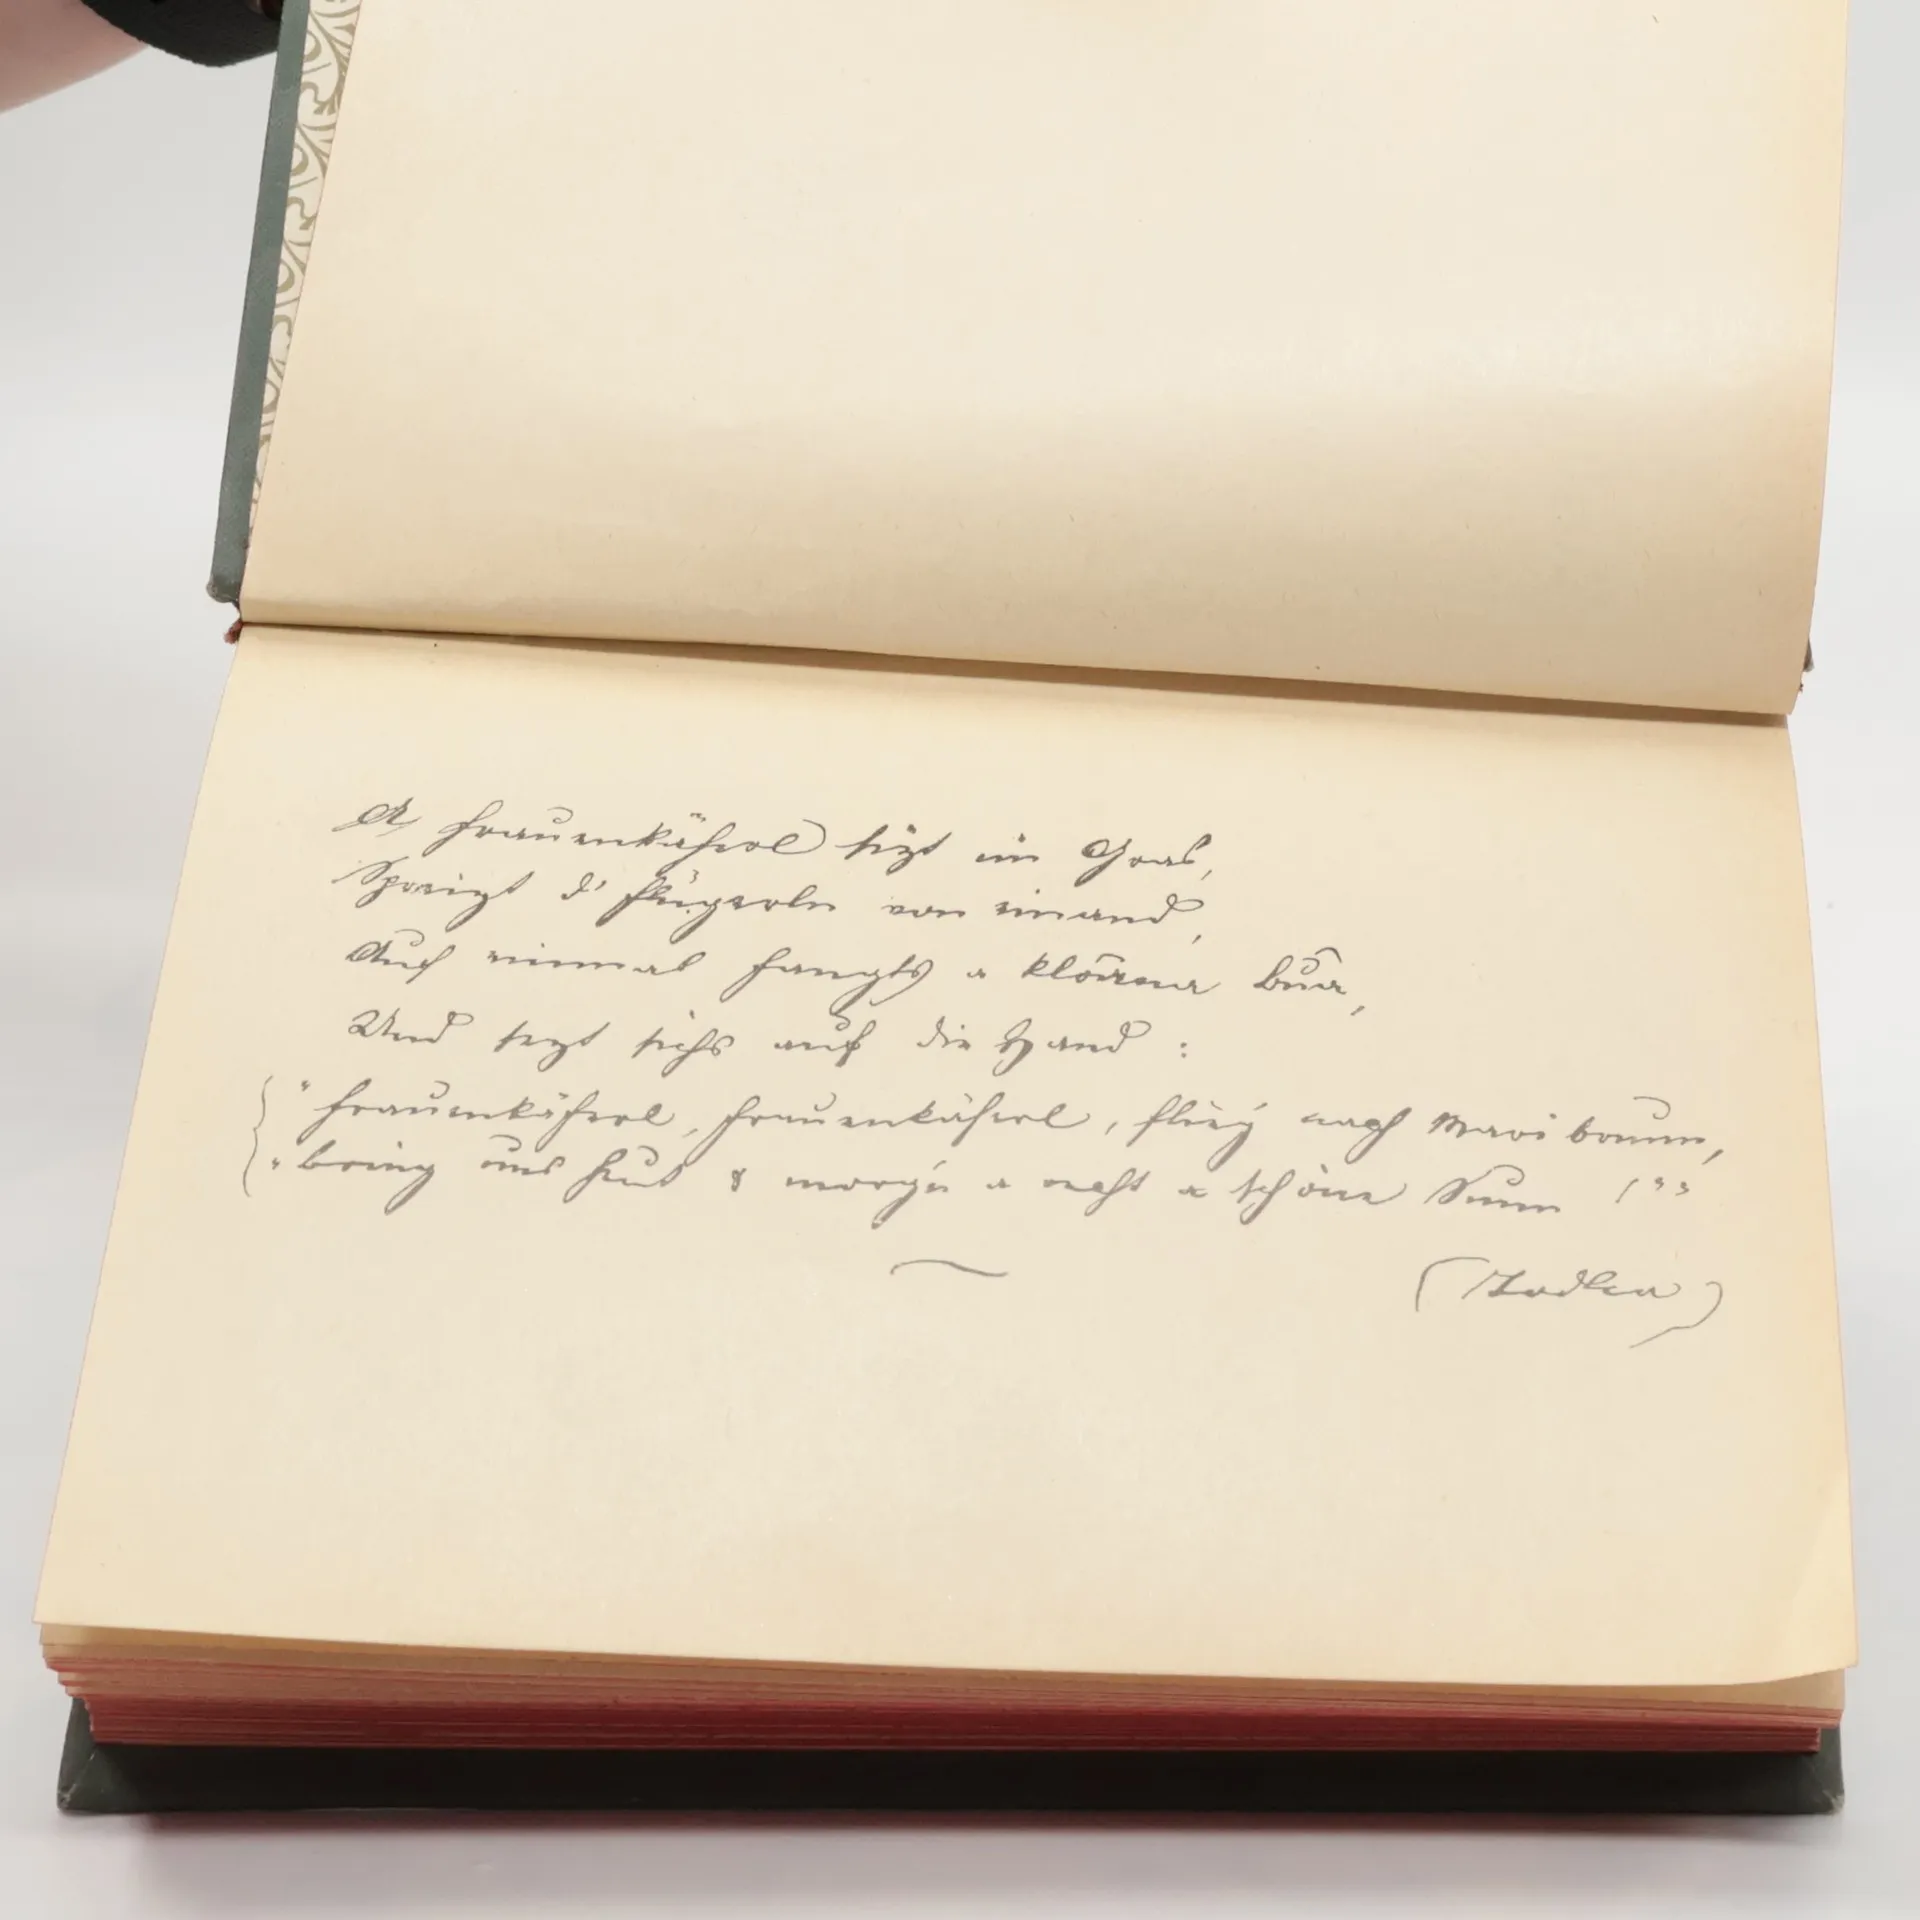 A Frauenkäferl sizt im Gras,
Spreizt d' Flügerln von einand,
Auf einmal fangts a kloana bua,
Und sezt sichs auf die Hand :
"Frauenkäferl, Frauenkäferl, flieg nach Mariabrunn,
"bring uns heut & morg'n a recht a schöne Sunn !""